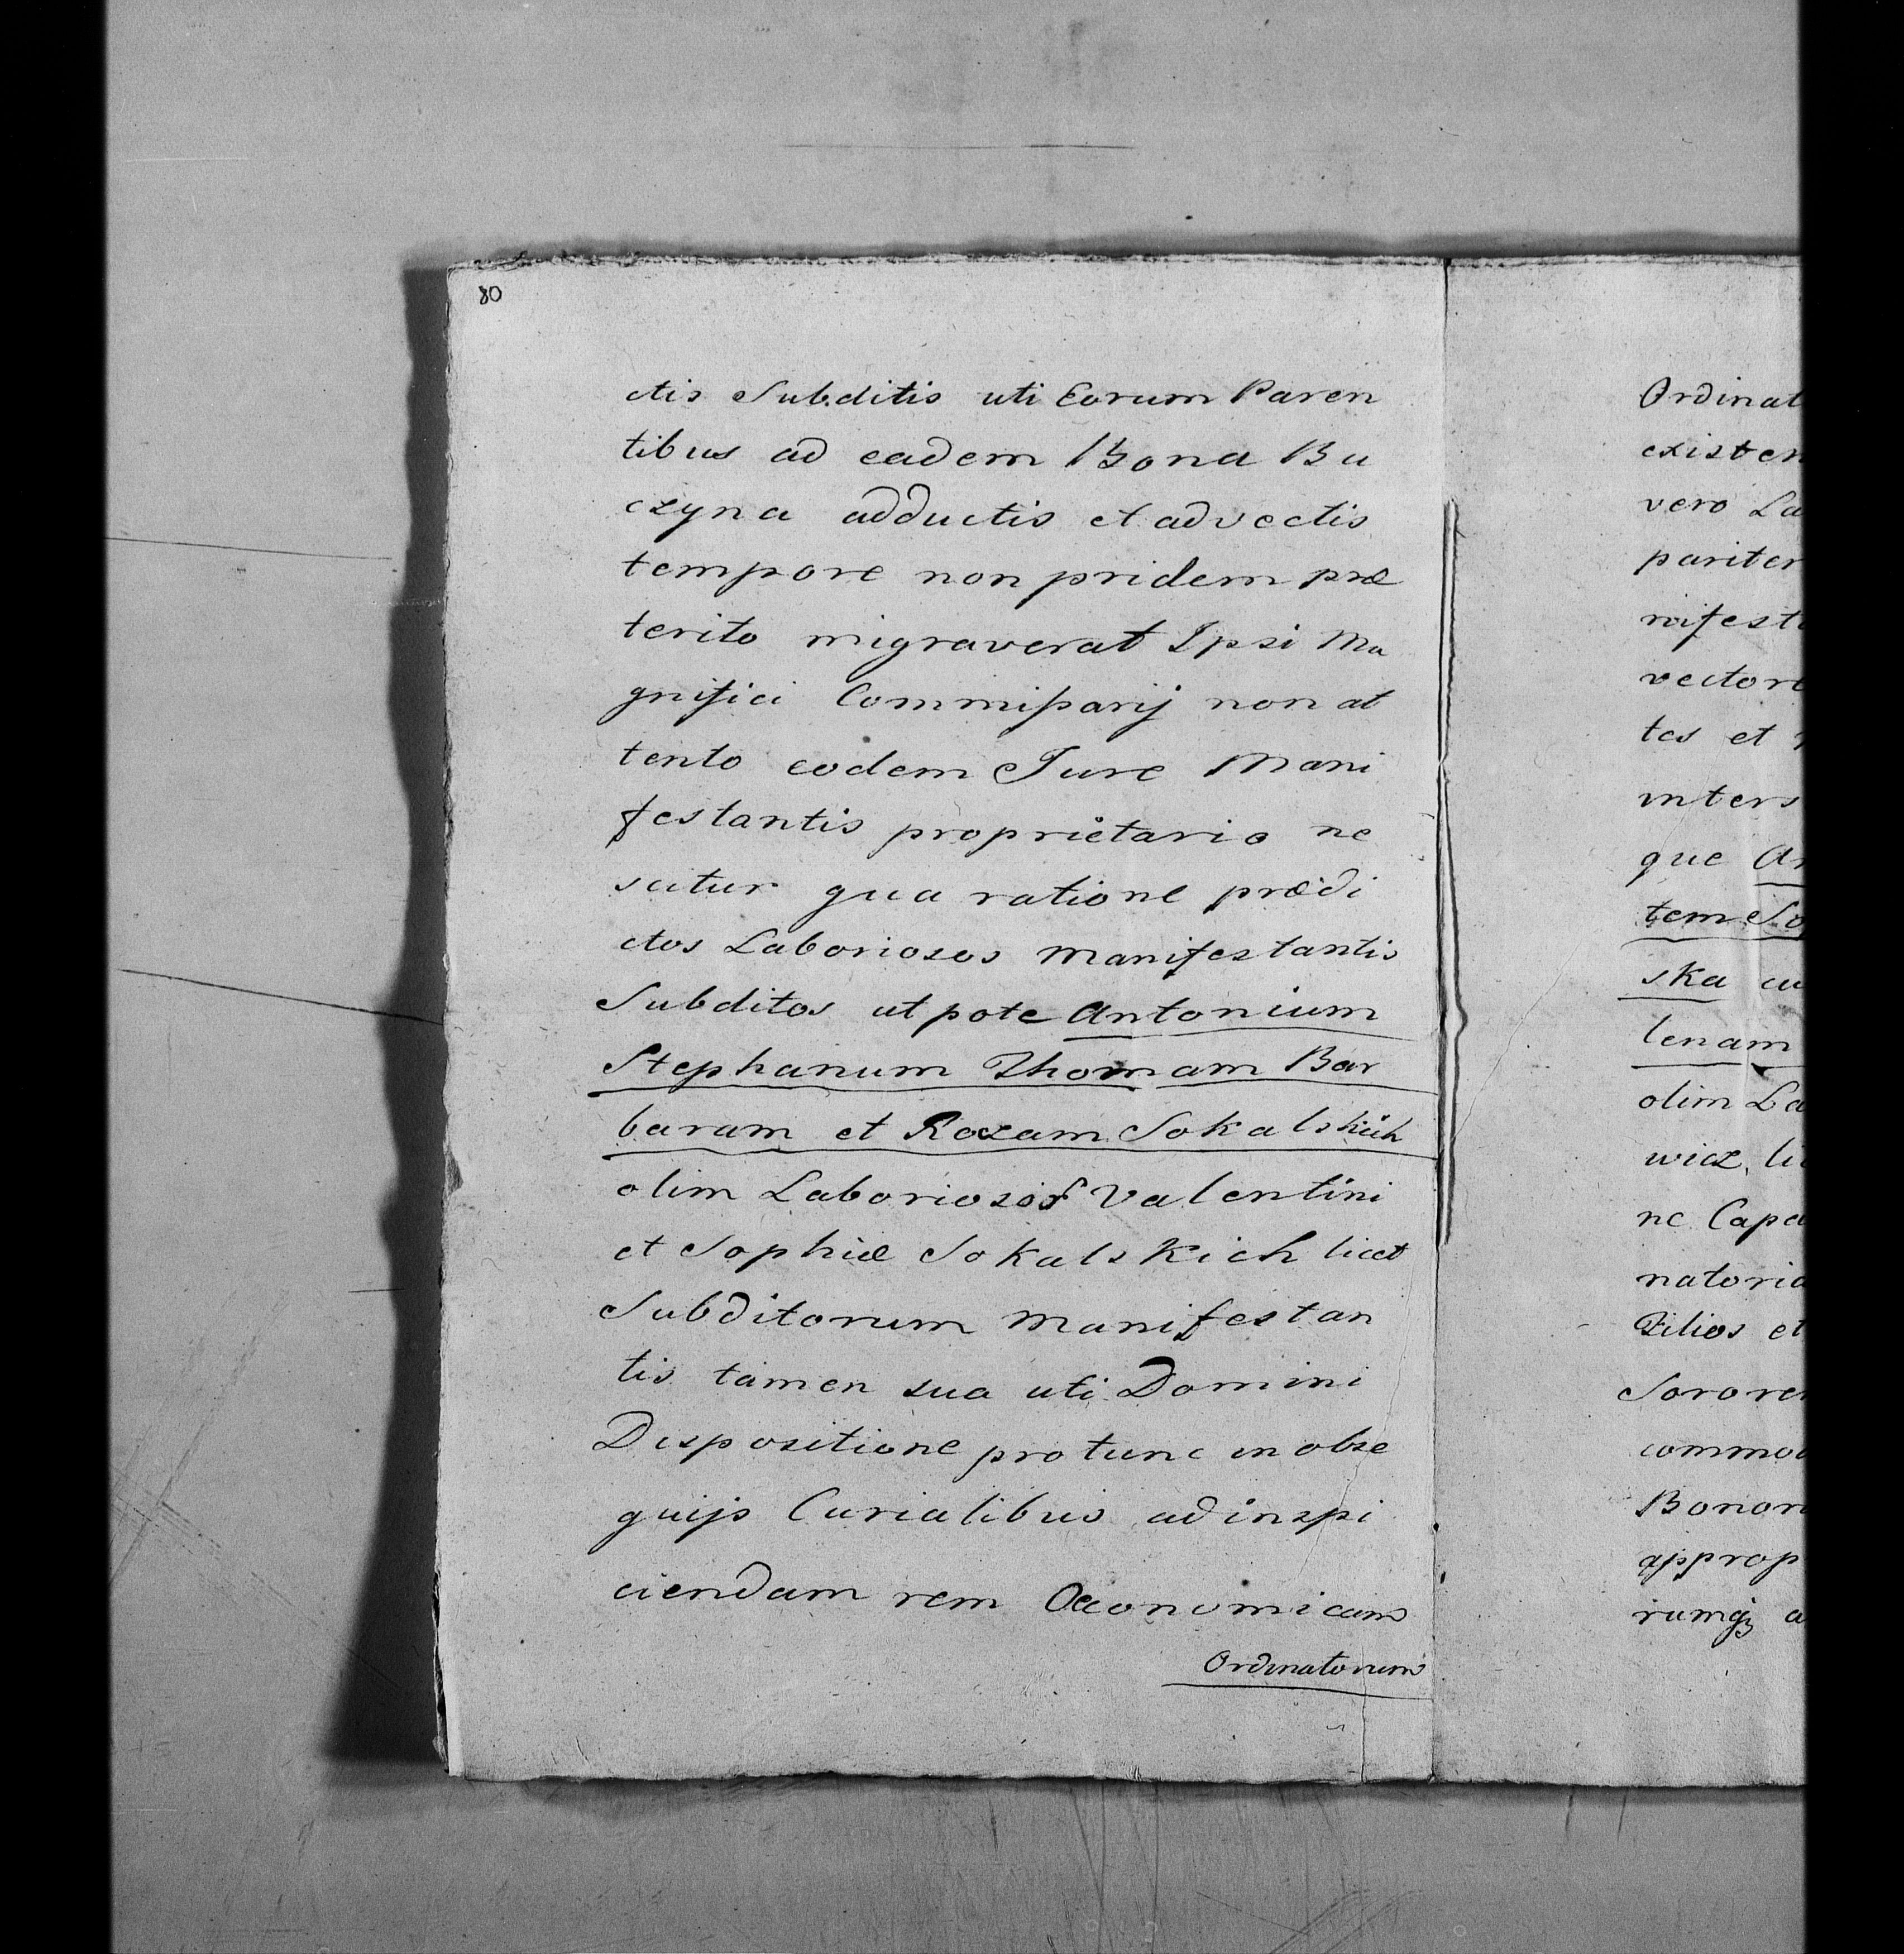 80
ctis Subditis uti Eorum Paren
tibus ad eadem Bona Bu
czyna adductis et advectis
tempore non pridem præ
terito migraverat Ipsi Ma
gnifici Commißarij non at
tento eodem Jure Mani
festantis proprietario ne
scitur qua ratione prædi
ctos Laboriosos Manifestantis
Subditos ut pote Antonium
Stephanum Thomam Bar
baram et Rozam Sokalskich
olim Laboriosor Valentini
et Sophiæ Sokalskich licet
Subditorum Manifestan
tis tamen sua uti Domini
Dispositione pro tunc in obse
quijs Curialibus ad inspi
ciendam rem Oeconomicam
Ordinatorum
Ordinat
existen
vero La
pariter
nifest
vector
tes et
inters
que An
tem So
ska cu
lenam
olim La
wicz, li
ne Capa
natoria
Filios et
Soror
commo
Bonor
approp
rumqz a